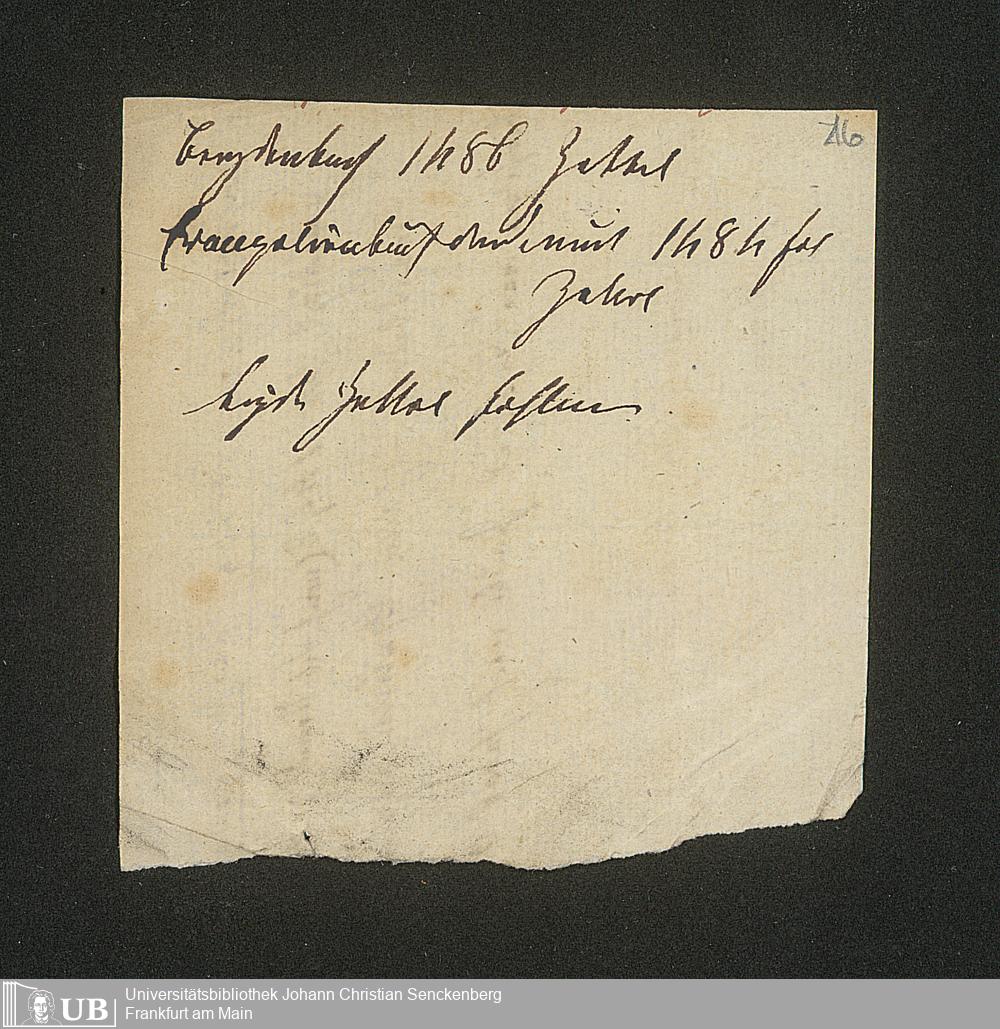 16
Berydenbuch 1486 Zettel
Evangelienbuch 1484 fol
Zettel
beyde Zettel fehlen
UB
Universitätsbibliothek Johann Christian Senckenberg
Frankfurt am Main